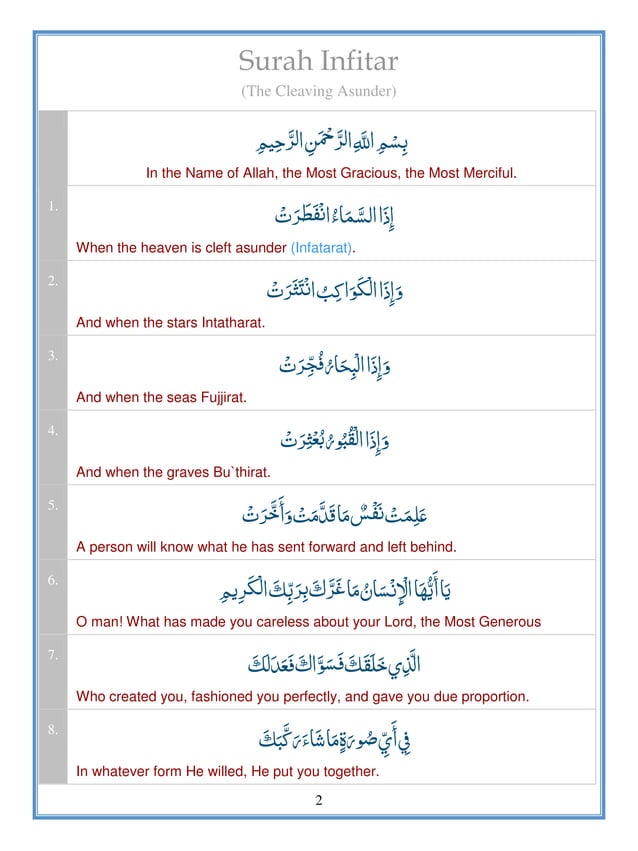 Surah Infitar
(The Cleaving Asunder)
بِسْمِ اللَّهِ الرَّحْمَنِ الرَّحِيمِ
In the Name of Allah, the Most Gracious, the Most Merciful.
1.
إِذَا السَّمَاءُ انْفَطَرَتْ
When the heaven is cleft asunder (Infatarat).
2.
وَإِذَا الْكَوَاكِبُ انْتَثَرَتْ
And when the stars Intatharat.
3.
وَإِذَا الْبِحَارُ فُجِّرَتْ
And when the seas Fujjirat.
4.
وَإِذَا الْقُبُورُ بُعْثِرَتْ
And when the graves Bu`thirat.
5.
عَلِمَتْ نَفْسٌ مَا قَدَّمَتْ وَأَخَّرَتْ
A person will know what he has sent forward and left behind.
6.
يَا أَيُّهَا الْإِنْسَانُ مَا غَرَّكَ بِرَبِّكَ الْكَرِيمِ
O man! What has made you careless about your Lord, the Most Generous
7.
الَّذِي خَلَقَكَ فَسَوَّاكَ فَعَدَلَكَ
Who created you, fashioned you perfectly, and gave you due proportion.
8.
فِي أَيِّ صُورَةٍ مَا شَاءَ رَكَّبَكَ
In whatever form He willed, He put you together.
2